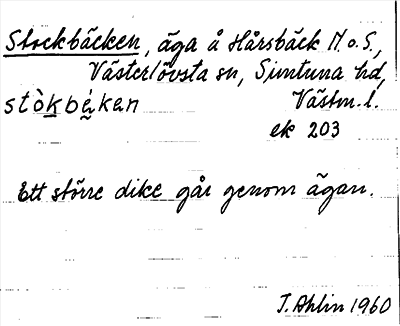 Stockbäcken, äga å Hårsbäck N.o.S.,
Västerlövsta sn, Simtuna hd,
stòkbékɛn Västm. l.
ek 203
Ett större dike går genom ägan.
T. Ahlin 1960